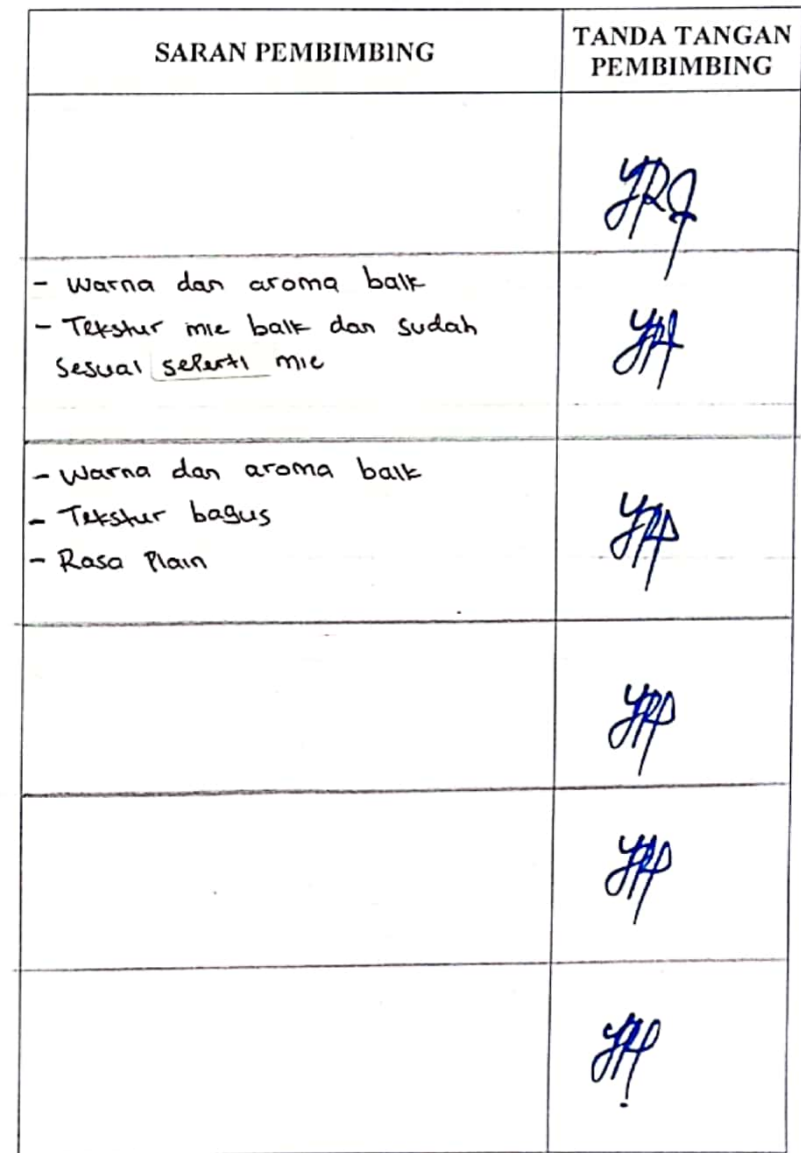 SARAN PEMBIMBING
TANDA TANGAN
PEMBIMBING
- Warna dan aroma baik
- Tekstur mie baik dan sudah
sesuai seperti mie
- Warna dan aroma baik
- Tekstur bagus
- Rasa Plain